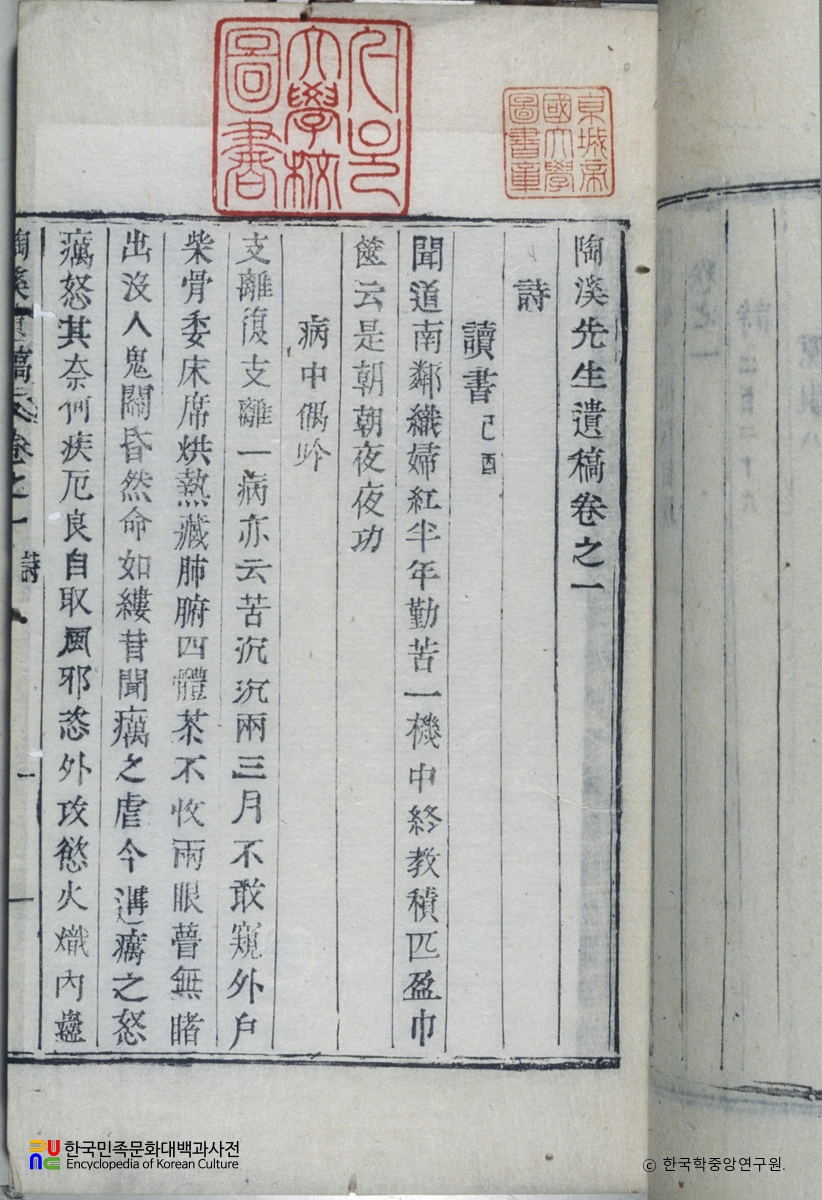 서울
大學校
圖書
京城帝
國大學
圖書章
陶溪先生遺稿卷之一
詩
讀書 己酉
聞道南鄰織婦紅半年勤苦一機中終教積匹盈巾
篋云是朝朝夜夜功
病中偶吟
支離復支離一病亦云苦沉沉兩三月不敢窺外戶
柴骨委床席烘熱藏肺腑四體苶不收兩眼瞢無睹
出沒人鬼關昏然命如縷昔聞癘之虐今遘癘之怒
癘怒其奈何疾厄良自取風邪恣外攻慾火熾內蠱
陶溪遺稿 卷之一 詩 一
한국민족문화대백과사전
Encyclopedia of Korean Culture
ⓒ 한국학중앙연구원.